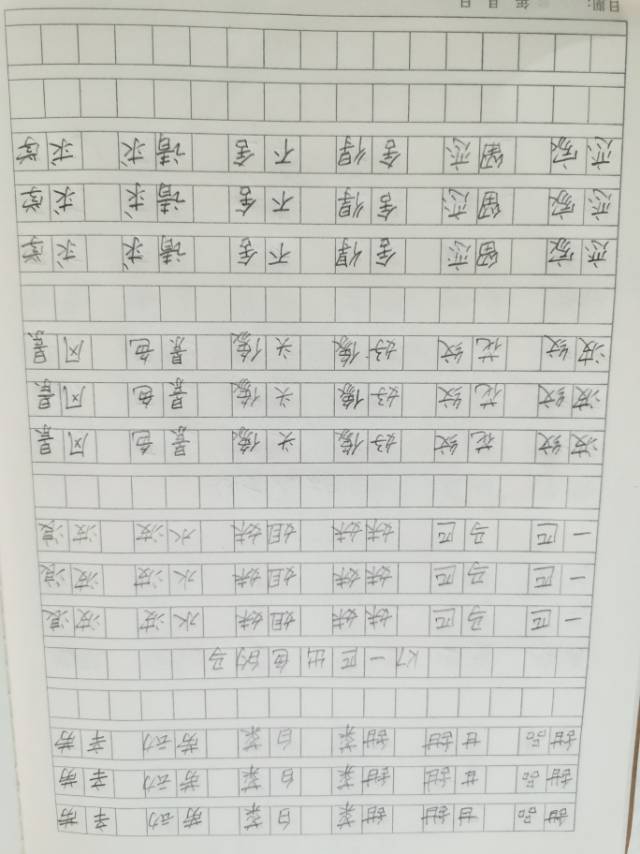 甜品 甘甜 甜菜 白菜 劳动 辛劳
甜品 甘甜 甜菜 白菜 劳动 辛劳
甜品 甘甜 甜菜 白菜 劳动 辛劳
K7 一匹出色的马
一匹 马匹 妹妹 姐妹 水波 波浪
一匹 马匹 妹妹 姐妹 水波 波浪
一匹 马匹 妹妹 姐妹 水波 波浪
波纹 花纹 好像 头像 景色 风景
波纹 花纹 好像 头像 景色 风景
波纹 花纹 好像 头像 景色 风景
恋家 留恋 舍得 不舍 请求 求学
恋家 留恋 舍得 不舍 请求 求学
恋家 留恋 舍得 不舍 请求 求学
日期: 年 月 日